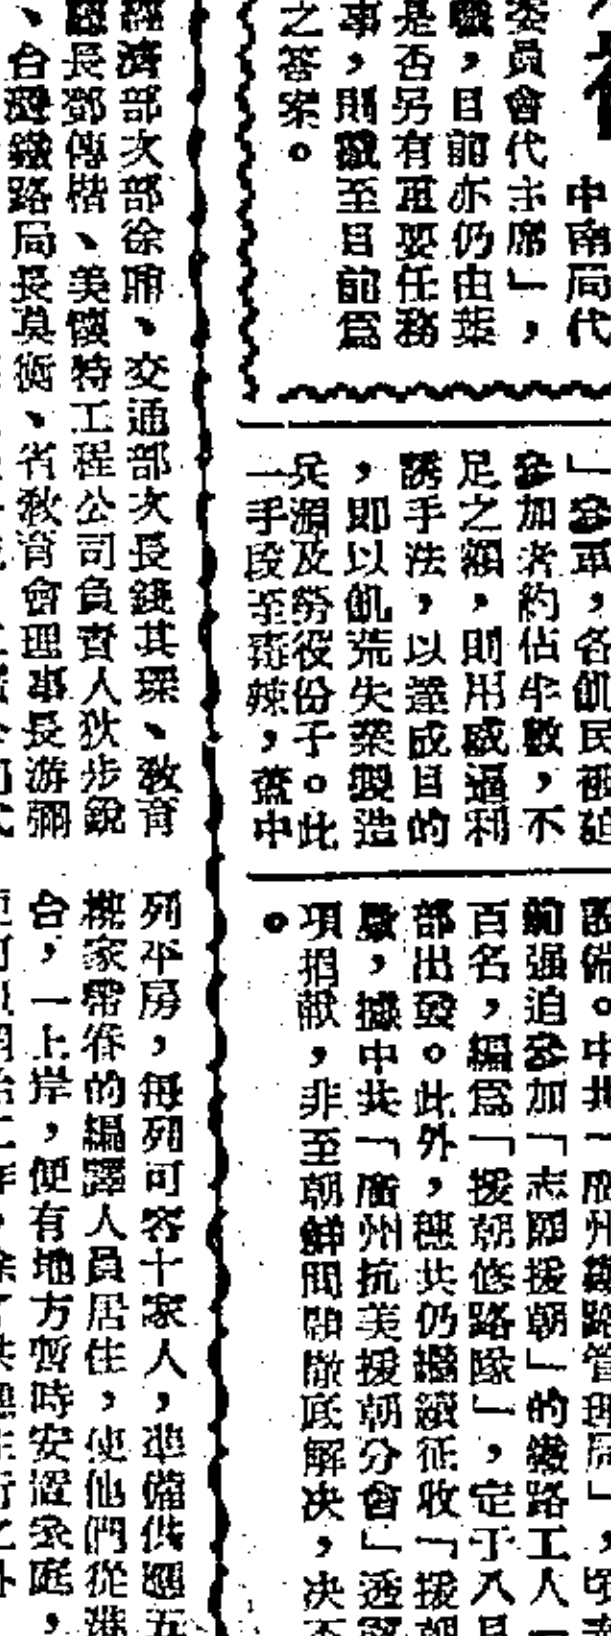 中南局代
委員會代主席」，
職，目前亦仍由葉
是否另有重要任務
事，則截至目前爲
之答案。
」參軍，各飢民被迫
參加者約佔半數，不
足之額，則用威逼利
誘手法，以達成目的
，即以飢荒失業製造
兵源及勞役份子。此
一手段至毒辣，舊中
設備。中共「廣州鐵路管理局」，頃
前强迫參加「志願援朝」的鐵路工人一
百名，編爲「援朝修路隊」，定于八月
部出發。此外，穗共仍繼續征收「援朝
獻，據中共「廣州抗美援朝分會」透露
項捐獻，非至朝鮮問題徹底解决，决不
。
經濟部次部徐鼐、交通部次長錢其琛、敎育
廳長鄧傳楷、美懷特工程公司負責人狄步銳
、台灣鐵路局長莫衡、省敎育會理事長游彌
列平房，每列可容十家人，準備供應五
楔家帶眷的編譯人員居住，使他們從港
台，一上岸，便有地方暫時安置家庭，